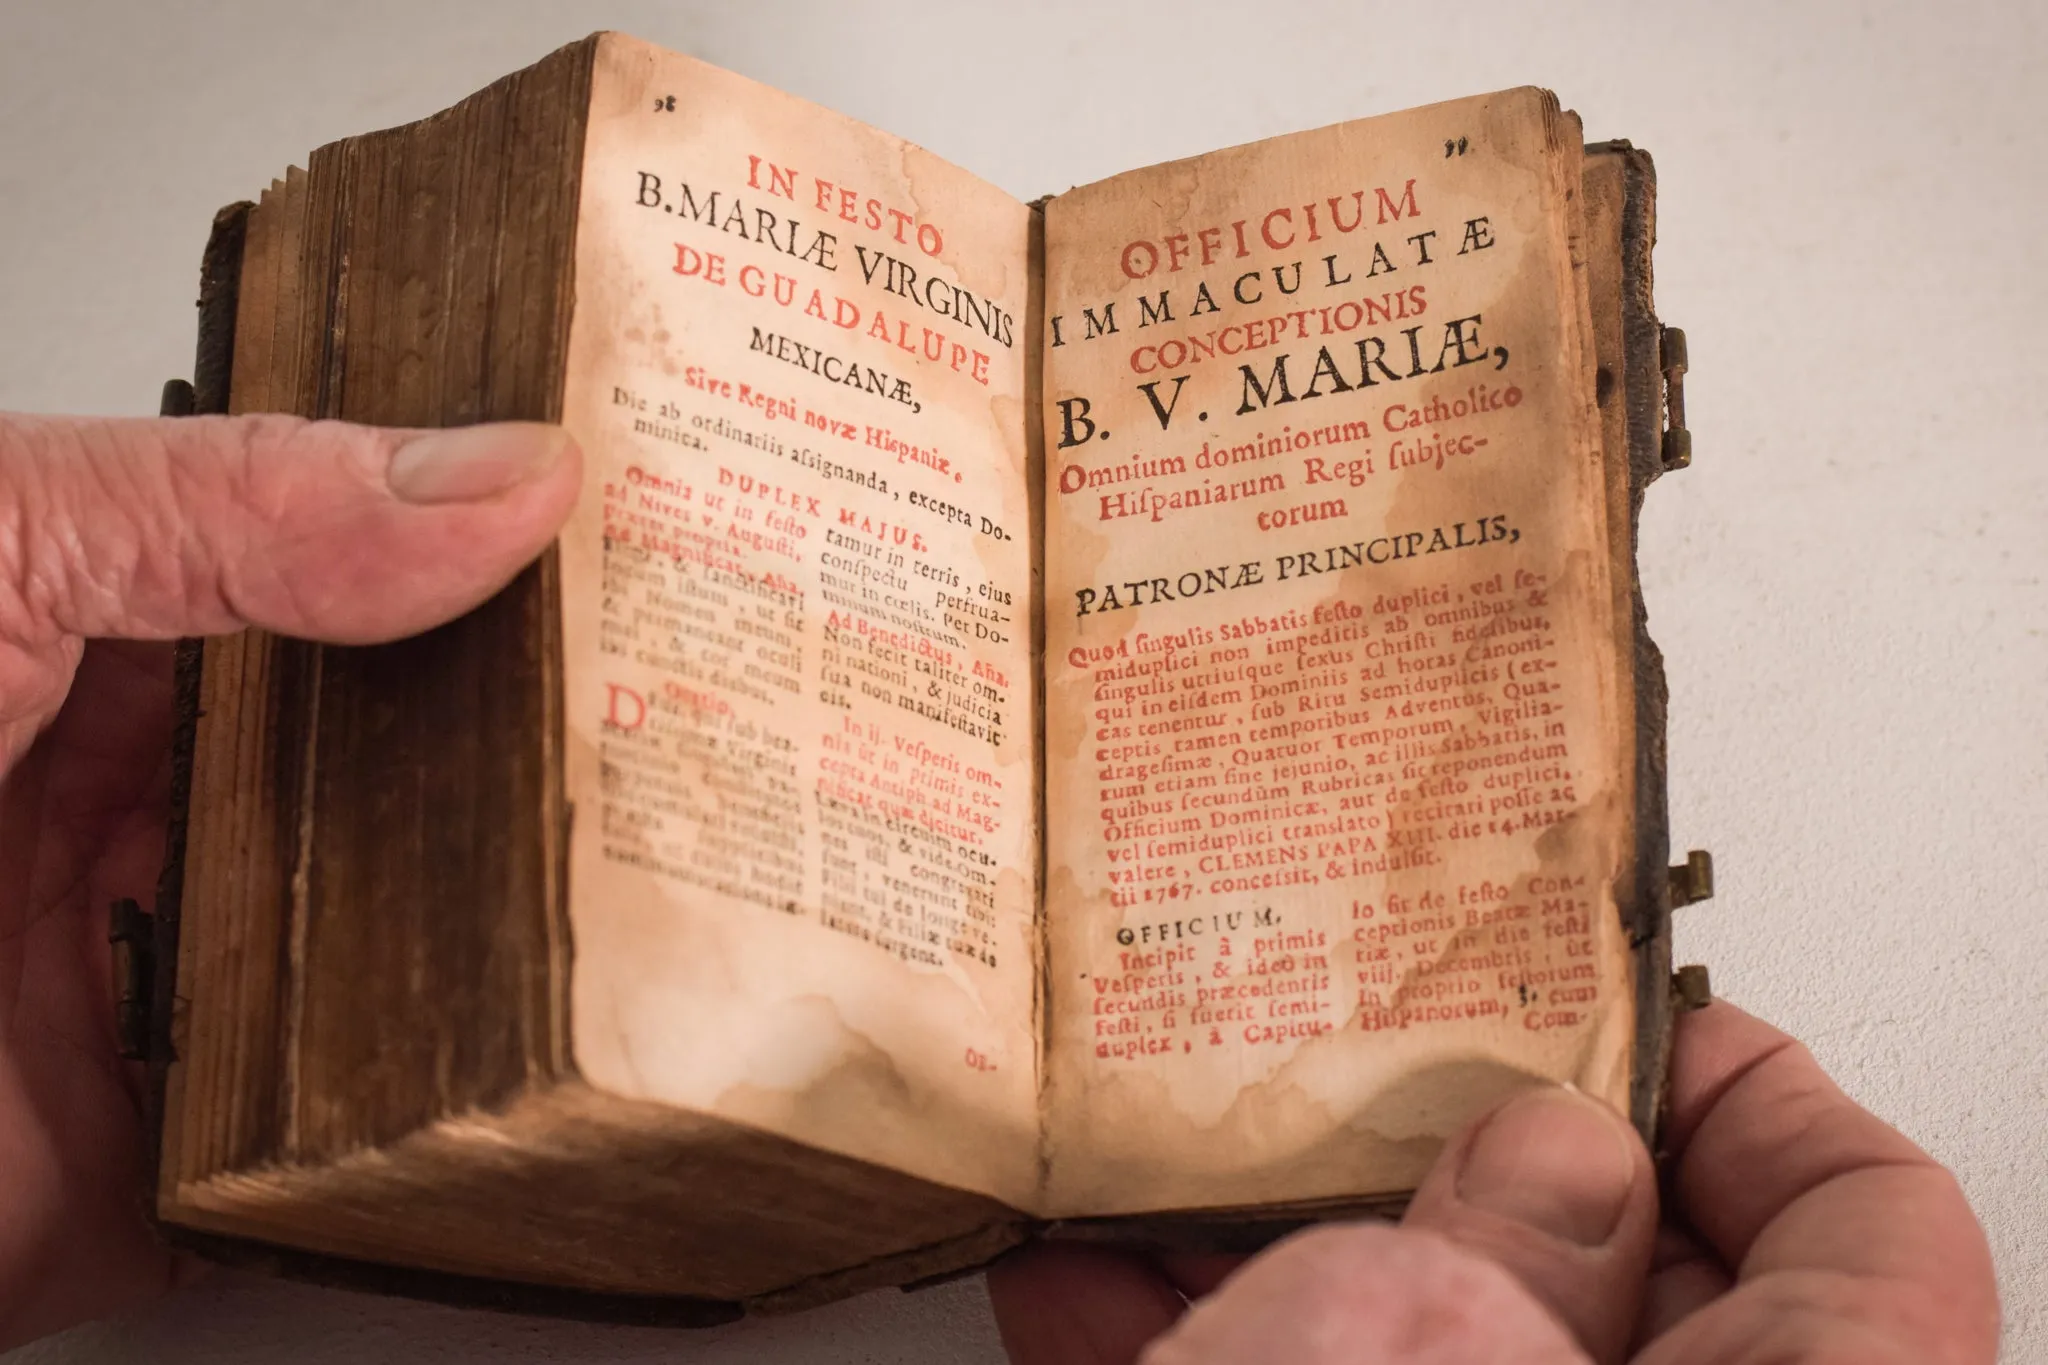 IN FESTO
B. MARIÆ VIRGINIS
DE GUADALUPE
MEXICANÆ,
Sive Regni novæ Hiſpaniæ.
Die ab ordinariis aſsignanda, excepta Do-
minica.
DUPLEX MAJUS.
Omnia ut in feſto
ad Nives v. Auguſti,
præter propria.
Ad Magnificat, Aña.
Elegi, & ſanctificavi
locum iſtum, ut ſit
ibi Nomen meum,
& permaneant oculi
mei, & cor meum
ibi cunctis diebus.
Oratio.
DEus, qui ſub bea-
Virginis
tamur in terris, ejus
conſpectu perfrua-
mur in cœlis. Per Do-
minum noſtrum.
Ad Benedictus, Aña.
Non fecit taliter om-
ni nationi, & judicia
ſua non manifeſtavit
eis.
In ij. Veſperis om-
nia ùt in primis ex-
cepta Antiph. ad Mag-
nificat quæ dicitur.
Leva in circuitu ocu-
los tuos, & vide. Om-
nes iſti congregati
ſunt, venerunt tibi:
Filii tui de longe ve-
nient, & Filiæ tuæ de
latere ſurgent.
OF-
OFFICIUM
IMMACULATÆ
CONCEPTIONIS
B. V. MARIÆ,
Omnium dominiorum Catholico
Hiſpaniarum Regi ſubjec-
torum
PATRONÆ PRINCIPALIS,
Quod ſingulis Sabbatis feſto duplici, vel ſe-
miduplici non impeditis ab omnibus &
ſingulis utriuſque ſexus Chriſti fidelibus,
qui in eiſdem Dominiis ad horas Canoni-
cas tenentur, ſub Ritu Semiduplicis (ex-
ceptis tamen temporibus Adventus, Qua-
drageſimæ, Quatuor Temporum, Vigilia-
rum etiam ſine jejunio, ac illis Sabbatis, in
quibus ſecundùm Rubricas ſit reponendum
Officium Dominicæ, aut de feſto duplici,
vel ſemiduplici tranſlato) recitari poſſe ac
valere, CLEMENS PAPA XIII. die 14. Mar-
tii 1767. conceſsit, & indulſit.
OFFICIUM.
Incipit à primis
Veſperis, & ideò in
ſecundis præcedentis
Feſti, ſi fuerit ſemi-
duplex, à Capitu-
lo fit de feſto Con-
ceptionis Beatæ Ma-
riæ, ut in die feſti
viij. Decembris, ùt
in proprio feſtorum
Hiſpanorum, 3. cum
Com-